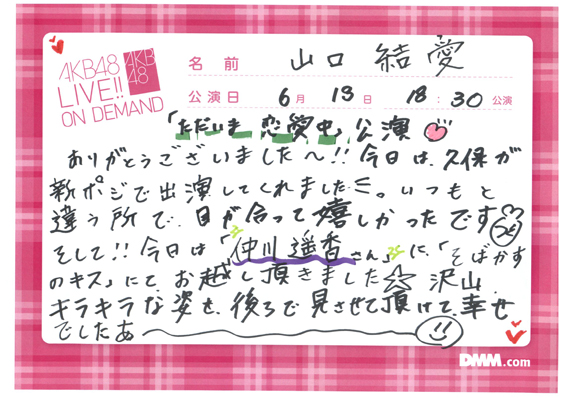 AKB48
LIVE!!
ON DEMAND
AKB
48
名前 山口 結愛
公演日 6月 13日 18:30公演
「ただいま 恋愛中」公演
ありがとうございました〜!!今日は、久保が
新ポジで出演してくれました。いつもと
違う所で、目が合って嬉しかったです
そして!!今日は「仲川遥香さん」に、「そばかす
のキス」にて、お越し頂きました☆ 沢山、
キラキラな姿を、後ろで見させて頂けて、幸せ
でしたぁ〜
DMM.com